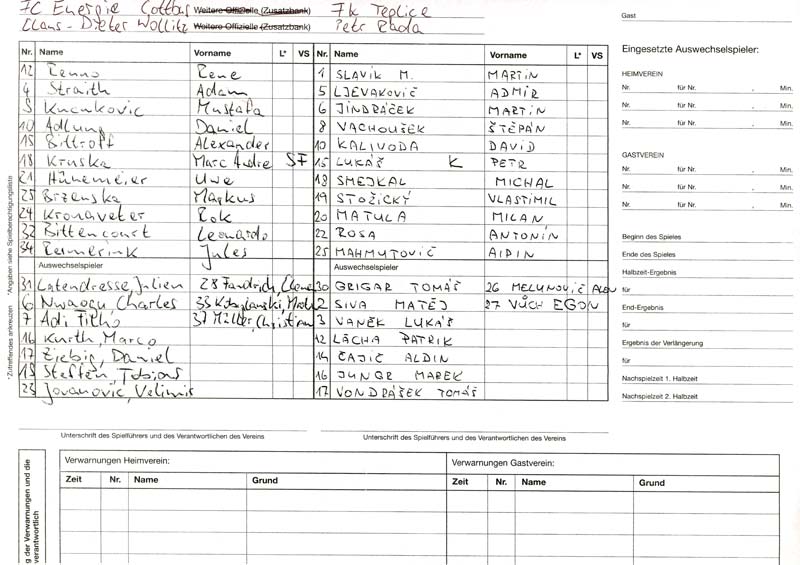 FC Energie Cottbus Weitere Offizielle (Zusatzbank) FK Teplice
Claus-Dieter Wollitz Weitere Offizielle (Zusatzbank) Petr Rada
Gast
Nr. Name Vorname L* VS Nr. Name Vorname L* VS
12 Renno Rene 1 SLAVÍK M. MARTIN
4 Straith Adam 5 LJEVAKOVIČ ADMIR
5 Kucukovic Mustafa 6 JINDRÁČEK MARTIN
10 Adlung Daniel 8 VACHOUŠEK ŠTĚPÁN
15 Bittroff Alexander 10 KALIVODA DAVID
18 Kruska Marc Andre SF 15 LUKÁŠ K PETR
21 Hünemeier Uwe 18 SMEJKAL MICHAL
25 Brzenska Markus 19 STOŽICKÝ VLASTIMIL
24 Kronaveter Rok 20 MATULA MILAN
32 Bittencourt Leonardo 22 ROSA ANTONÍN
34 Reimerink Jules 25 MAHMUTOVIČ AIDIN
Auswechselspieler Auswechselspieler
31 Latendresse, Julien 28 Fandrich, Clemens 30 GRIGAR TOMÁŠ 26 MELUNOVIČ ALEN
6 Nwaogu, Charles 33 2 SIVA MATĚJ 27 VŮCH EGON
7 Adi Filho 37 Müller, Christian 3 VANĚK LUKÁŠ
16 Kurth, Marco 12 LÁCHA PATRIK
17 Ziebig, Daniel 14 ČAJIČ ALDIN
19 Steffen, Tobias 16 JUNGR MAREK
23 Jovanović, Velimir 17 VONDRÁŠEK TOMÁŠ
Unterschrift des Spielführers und des Verantwortlichen des Vereins Unterschrift des Spielführers und des Verantwortlichen des Vereins
Eingesetzte Auswechselspieler:
HEIMVEREIN
Nr. für Nr. . Min.
Nr. für Nr. . Min.
Nr. für Nr. . Min.
GASTVEREIN
Nr. für Nr. . Min.
Nr. für Nr. . Min.
Nr. für Nr. . Min.
Beginn des Spieles
Ende des Spieles
Halbzeit-Ergebnis
für
End-Ergebnis
für
Ergebnis der Verlängerung
für
Nachspielzeit 1. Halbzeit
Nachspielzeit 2. Halbzeit
*Zutreffendes ankreuzen *Angaben siehe Spielberechtigungsliste
Verwarnungen Heimverein: Verwarnungen Gastverein:
Zeit Nr. Name Grund Zeit Nr. Name Grund
g der Verwarnungen und die
verantwortlich